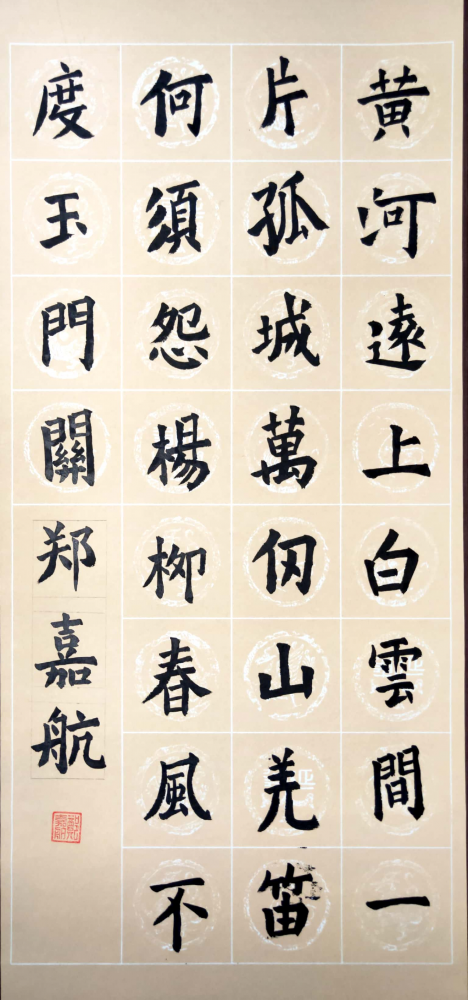 黄河遠上白雲間一
片孤城萬仞山羌笛
何須怨楊柳春風不
度玉門關
郑嘉航